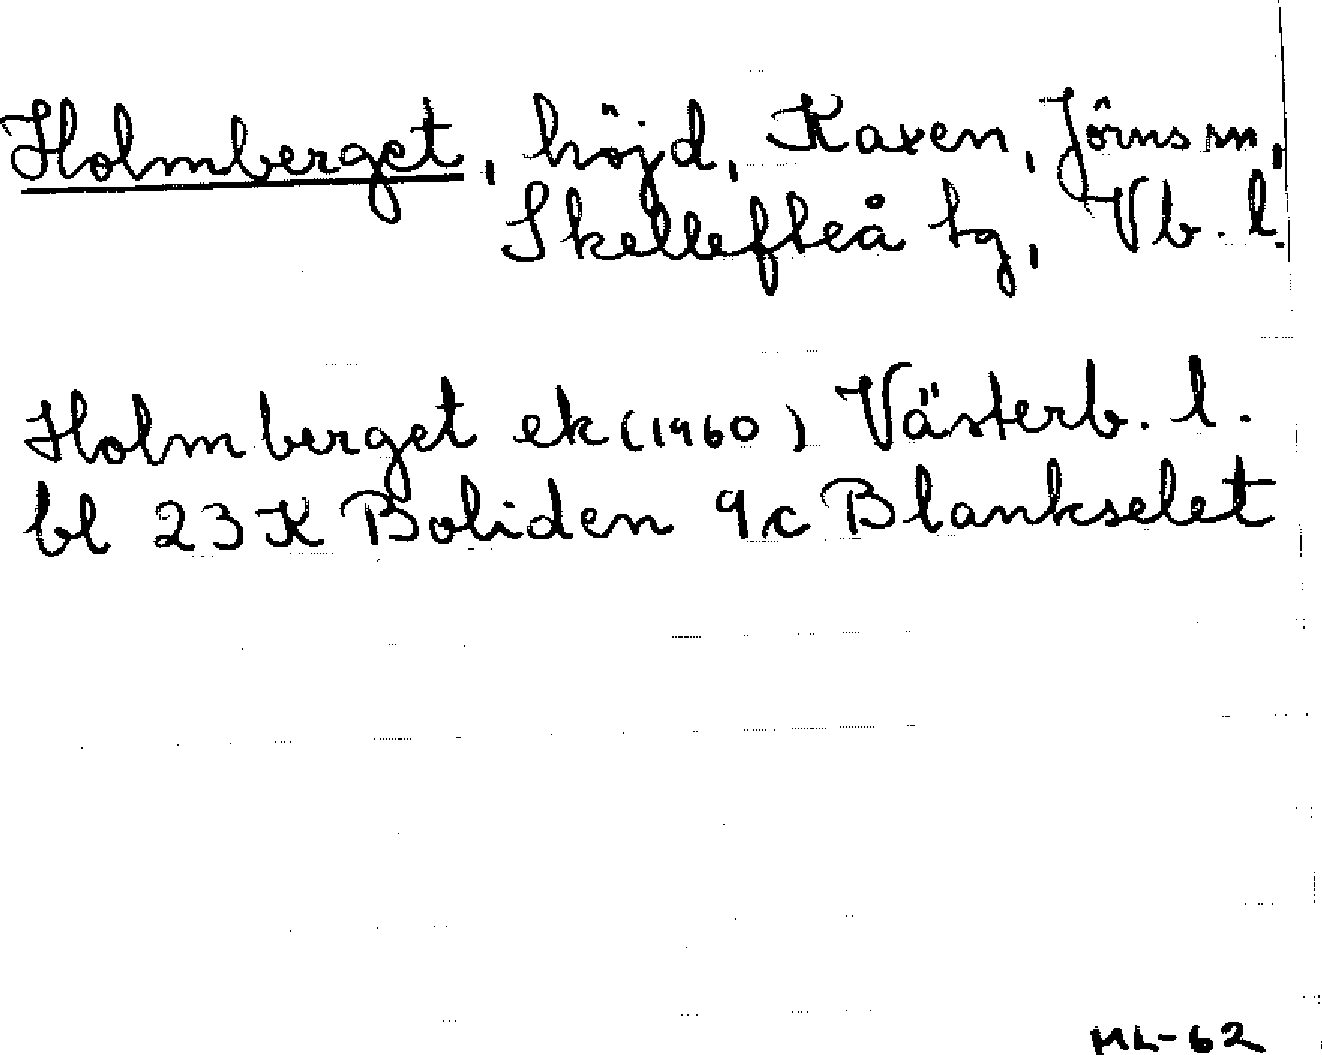 Holmberget, höjd, Kaxen, Jörns sn,
Skellefteå tg, Vb. l.
Holmberget ek (1960) Västerb. l.
bl 23 K Boliden 9c Blankselet
ML-62